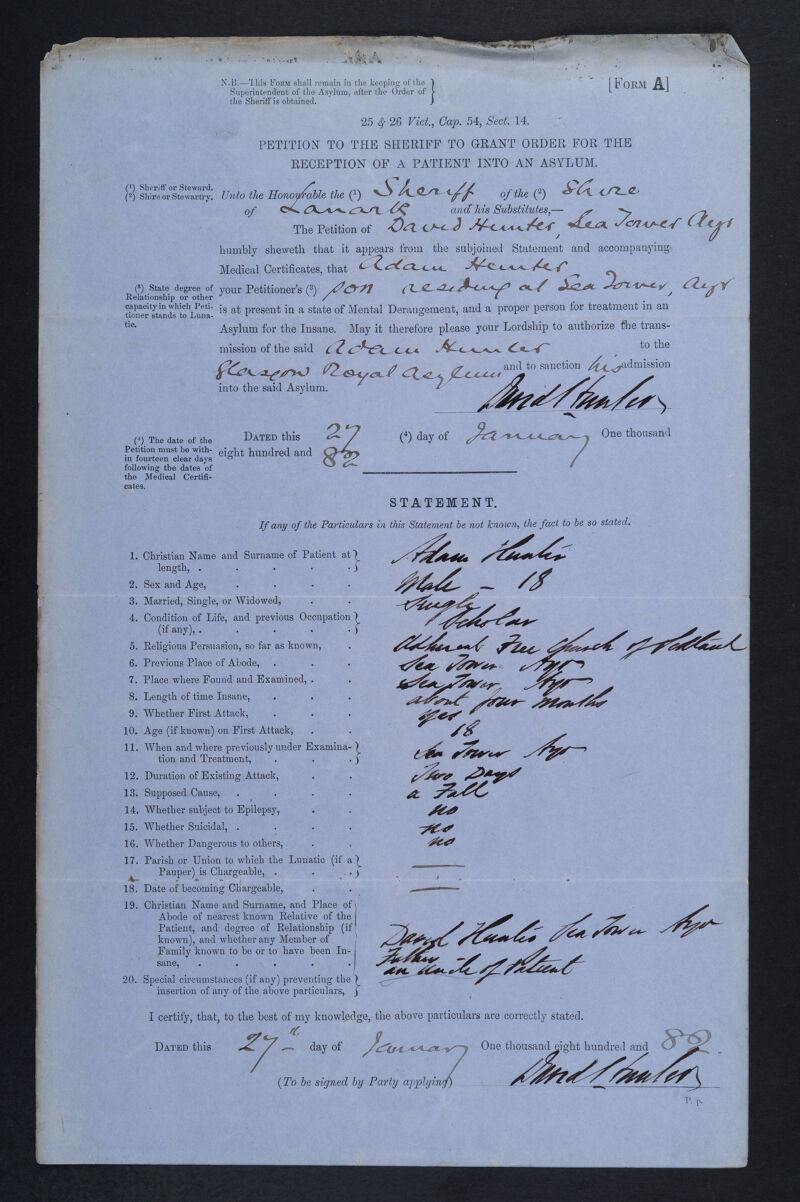 N.B.—This Form shall remain in the keeping of the
Superintendent of the Asylum, after the Order of
the Sheriff is obtained.
[Form A]
25 & 26 Vict., Cap. 54, Sect. 14.
PETITION TO THE SHERIFF TO GRANT ORDER FOR THE
RECEPTION OF A PATIENT INTO AN ASYLUM.
(¹) Sheriff or Steward.
(²) Shire or Stewartry.
Unto the Honourable the (¹) Sheriff of the (²) Shire
of Lanark and his Substitutes,—
The Petition of David Hunter, Sea Tower Ayr
humbly sheweth that it appears from the subjoined Statement and accompanying
Medical Certificates, that Adam Hunter
(³) State degree of
Relationship or other
capacity in which Peti-
tioner stands to Luna-
tic.
your Petitioner's (³) son residing at Sea Tower, Ayr
is at present in a state of Mental Derangement, and a proper person for treatment in an
Asylum for the Insane. May it therefore please your Lordship to authorize the trans-
mission of the said Adam Hunter to the
Glasgow Royal Asylum and to sanction his admission
into the said Asylum.
David Hunter
(⁴) The date of the
Petition must be with-
in fourteen clear days
following the dates of
the Medical Certifi-
cates.
Dated this 27 (⁴) day of January One thousand
eight hundred and 82
STATEMENT.
If any of the Particulars in this Statement be not known, the fact to be so stated.
1. Christian Name and Surname of Patient at
length, . . . . . Adam Hunter
2. Sex and Age, . . . . Male – 18
3. Married, Single, or Widowed, . . Single
4. Condition of Life, and previous Occupation
(if any), . . . . . Scholar
5. Religious Persuasion, so far as known, . Adherent Free Church of Scotland
6. Previous Place of Abode, . . . Sea Tower Ayr
7. Place where Found and Examined, . . Sea Tower Ayr
8. Length of time Insane, . . . about four months
9. Whether First Attack, . . . yes
10. Age (if known) on First Attack, . . 18
11. When and where previously under Examina-
tion and Treatment, . . . Sea Tower Ayr
12. Duration of Existing Attack, . . Two Days
13. Supposed Cause, . . . . a Fall
14. Whether subject to Epilepsy, . . no
15. Whether Suicidal, . . . . no
16. Whether Dangerous to others, . . no
17. Parish or Union to which the Lunatic (if a
Pauper) is Chargeable, . . . —
18. Date of becoming Chargeable, . . —
19. Christian Name and Surname, and Place of
Abode of nearest known Relative of the
Patient, and degree of Relationship (if
known), and whether any Member of
Family known to be or to have been In-
sane, . . . . .
David Hunter Sea Tower Ayr
Father
an Uncle of Patient
20. Special circumstances (if any) preventing the
insertion of any of the above particulars,
I certify, that, to the best of my knowledge, the above particulars are correctly stated.
Dated this 27th day of January One thousand eight hundred and 82
(To be signed by Party applying) David Hunter
P. p.